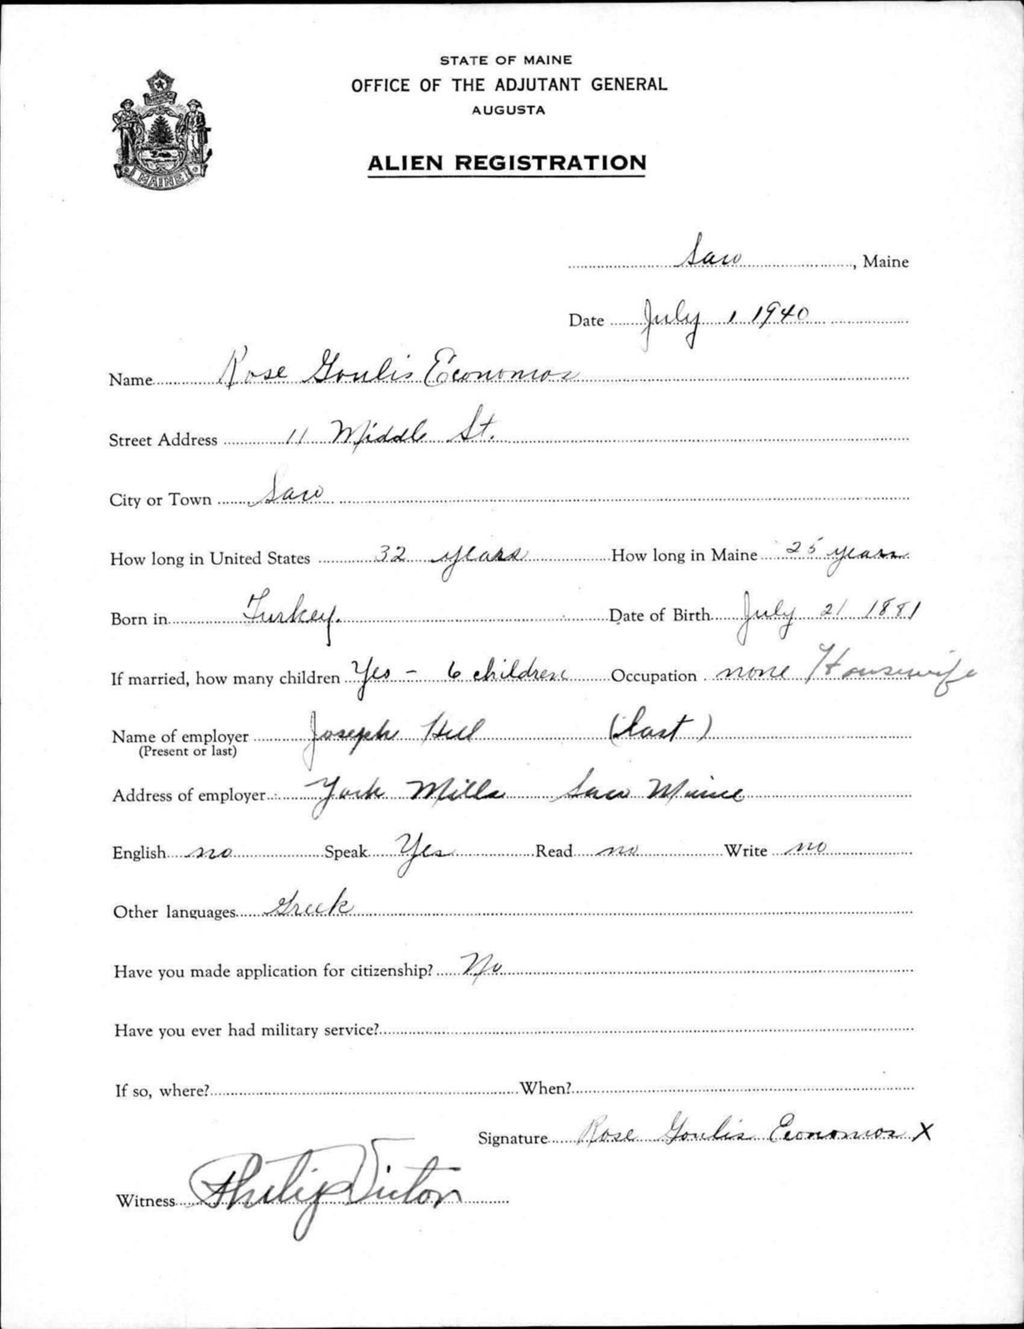 STATE OF MAINE
OFFICE OF THE ADJUTANT GENERAL
AUGUSTA
ALIEN REGISTRATION
MAINE
Saco, Maine
Date July 1 1940
Name Rose Goulis Economos
Street Address 11 Middle St.
City or Town Saco
How long in United States 32 years How long in Maine 25 years
Born in Turkey. Date of Birth July 21 1881
If married, how many children Yes - 6 children Occupation none Housewife
Name of employer Joseph Hill (last)
(Present or last)
Address of employer York Mills Saco Maine
English no Speak Yes Read no Write no
Other languages Greek
Have you made application for citizenship? No
Have you ever had military service?
If so, where? When?
Signature Rose Goulis Economos X
Witness Philip Victor